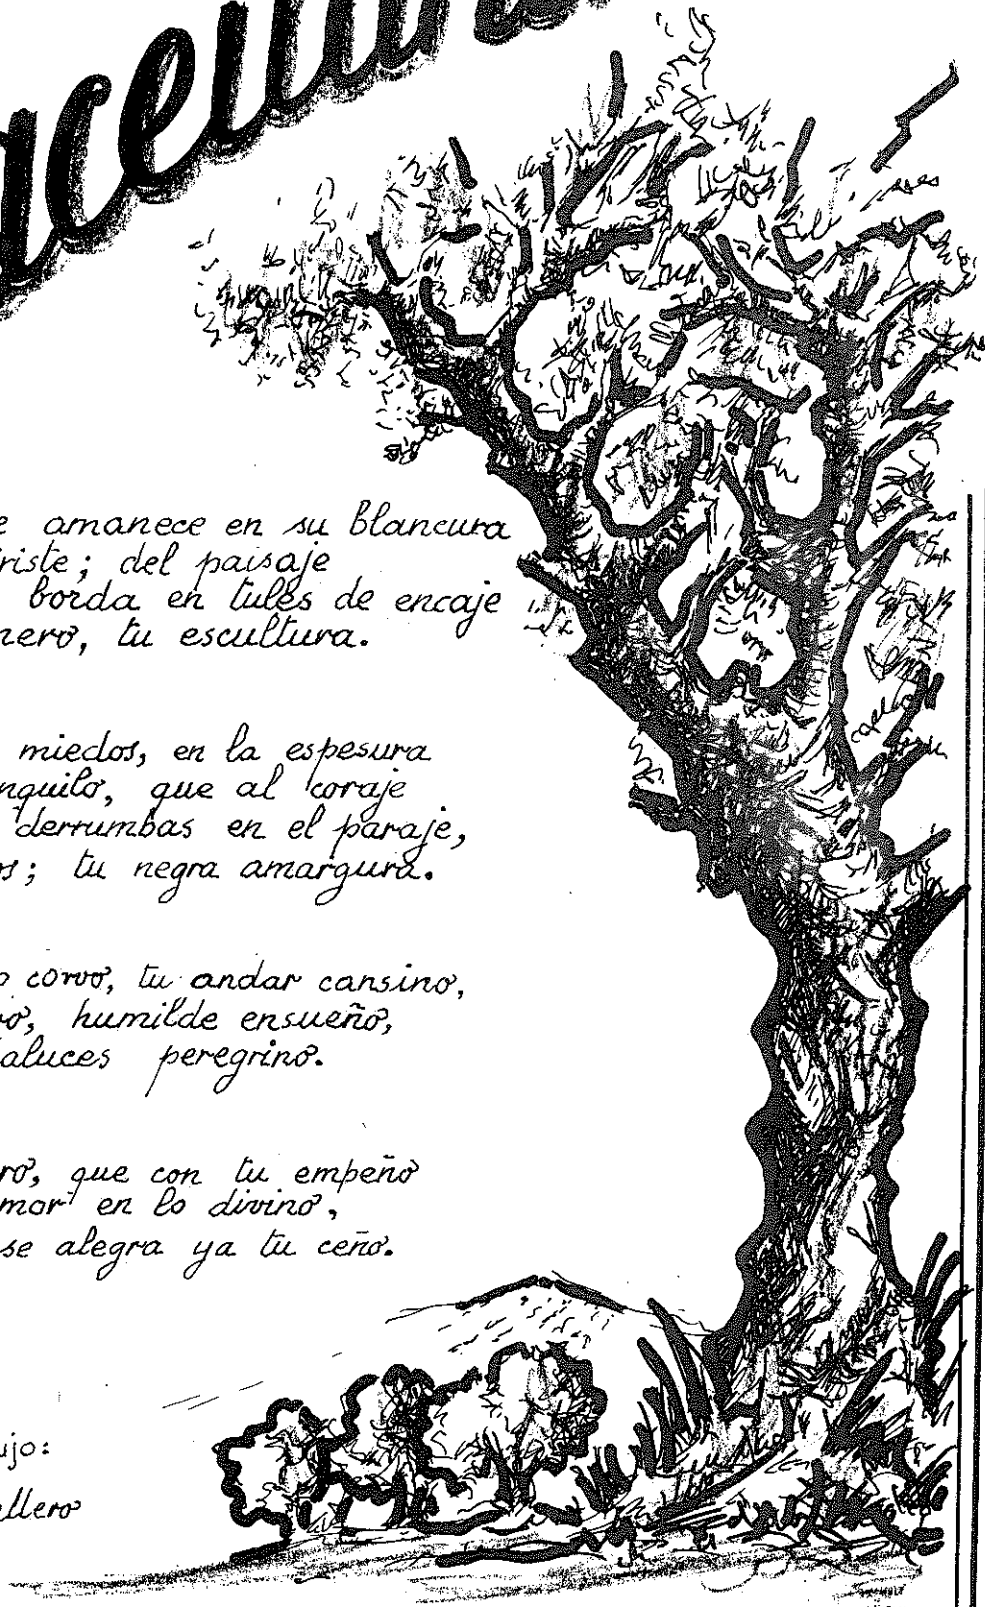 amanece en su blancura
riste; del paisaje
borda en tules de encaje
nero, tu escultura.
miedos, en la espesura
nquilo, que al coraje
derrumbas en el paraje,
os; tu negra amargura.
o corvo, tu andar cansino,
humilde ensueño,
aluces peregrino.
ro, que con tu empeño
mar en lo divino,
se alegra ya tu ceño.
ujo:
llero